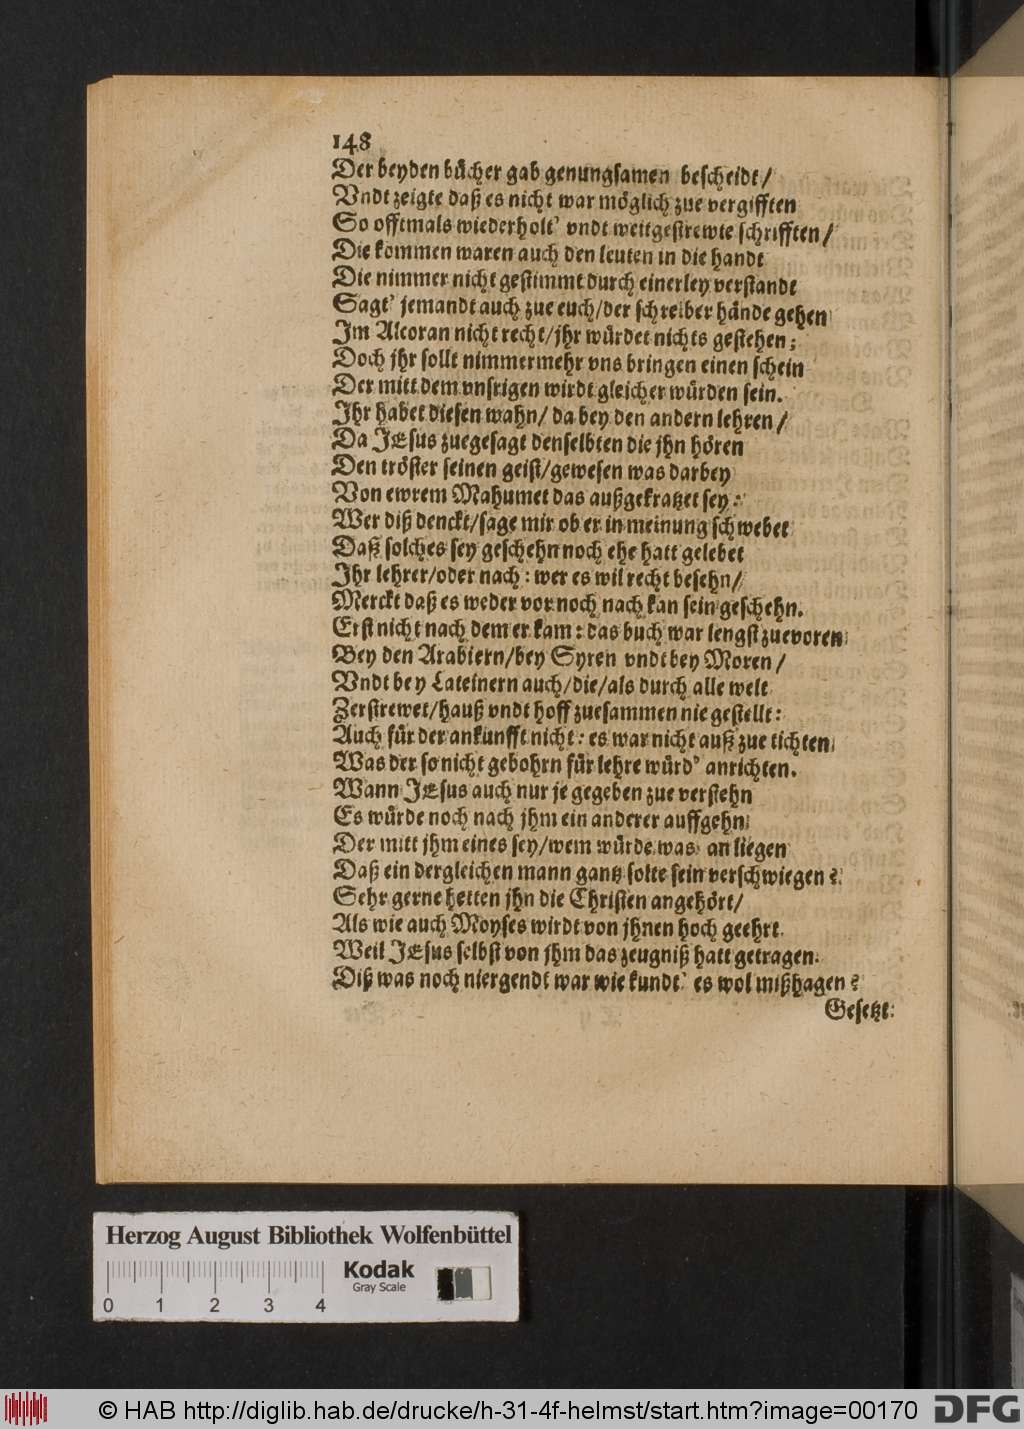 148
Der beyden bücher gab genungsamen bescheidt/
Vndt zeigte daß es nicht war möglich zue vergifften
So offtmals wiederholt' vndt weitgestrewte schrifften/
Die kommen waren auch den leuten in die handt
Die nimmer nicht gestimmt durch einerley verstandt
Sagt' jemandt auch zue euch/der schreiber hände gehen
Im Alcoran nicht recht/jhr würdet nichts gestehen;
Doch jhr sollt nimmermehr vns bringen einen schein
Der mitt dem vnsrigen wirdt gleicher würden sein.
Ihr habet diesen wahn/ da bey den andern lehren/
Da JEsus zuegesagt denselbten die jhn hören
Den tröster seinen geist/gewesen was darbey
Von ewrem Mahumet das außgekratzet sey:
Wer diß denckt/sage mir ob er in meinung schwebet
Daß solches sey geschehn noch ehe hatt gelebet
Ihr lehrer/oder nach: wer es wil recht besehn/
Merckt daß es weder vor noch nach kan sein geschehn.
Erst nicht nach dem er kam: das buch war lengst zuevoren
Bey den Arabiern/bey Syren vndt bey Moren/
Vndt bey Lateinern auch/die/als durch alle welt
Zerstrewet/hauß vndt hoff zuesammen nie gestellt:
Auch für der ankunfft nicht: es war nicht auß zue tichten
Was der so nicht gebohrn für lehre würd' anrichten.
Wann JEsus auch nur je gegeben zue verstehn
Es würde noch nach jhm ein anderer auffgehn
Der mitt jhm eines sey/wem würde was an liegen
Daß ein dergleichen mann gantz solte sein verschwiegen?
Sehr gerne hetten jhn die Christen angehört/
Als wie auch Moyses wirdt von jhnen hoch geehrt.
Weil JEsus selbst von jhm das zeugniß hatt getragen.
Diß was noch niergendt war wie kundt' es wol mißhagen?
Gesetzt:
Herzog August Bibliothek Wolfenbüttel
Kodak
Gray Scale
0 1 2 3 4
© HAB http://diglib.hab.de/drucke/h-31-4f-helmst/start.htm?image=00170
DFG